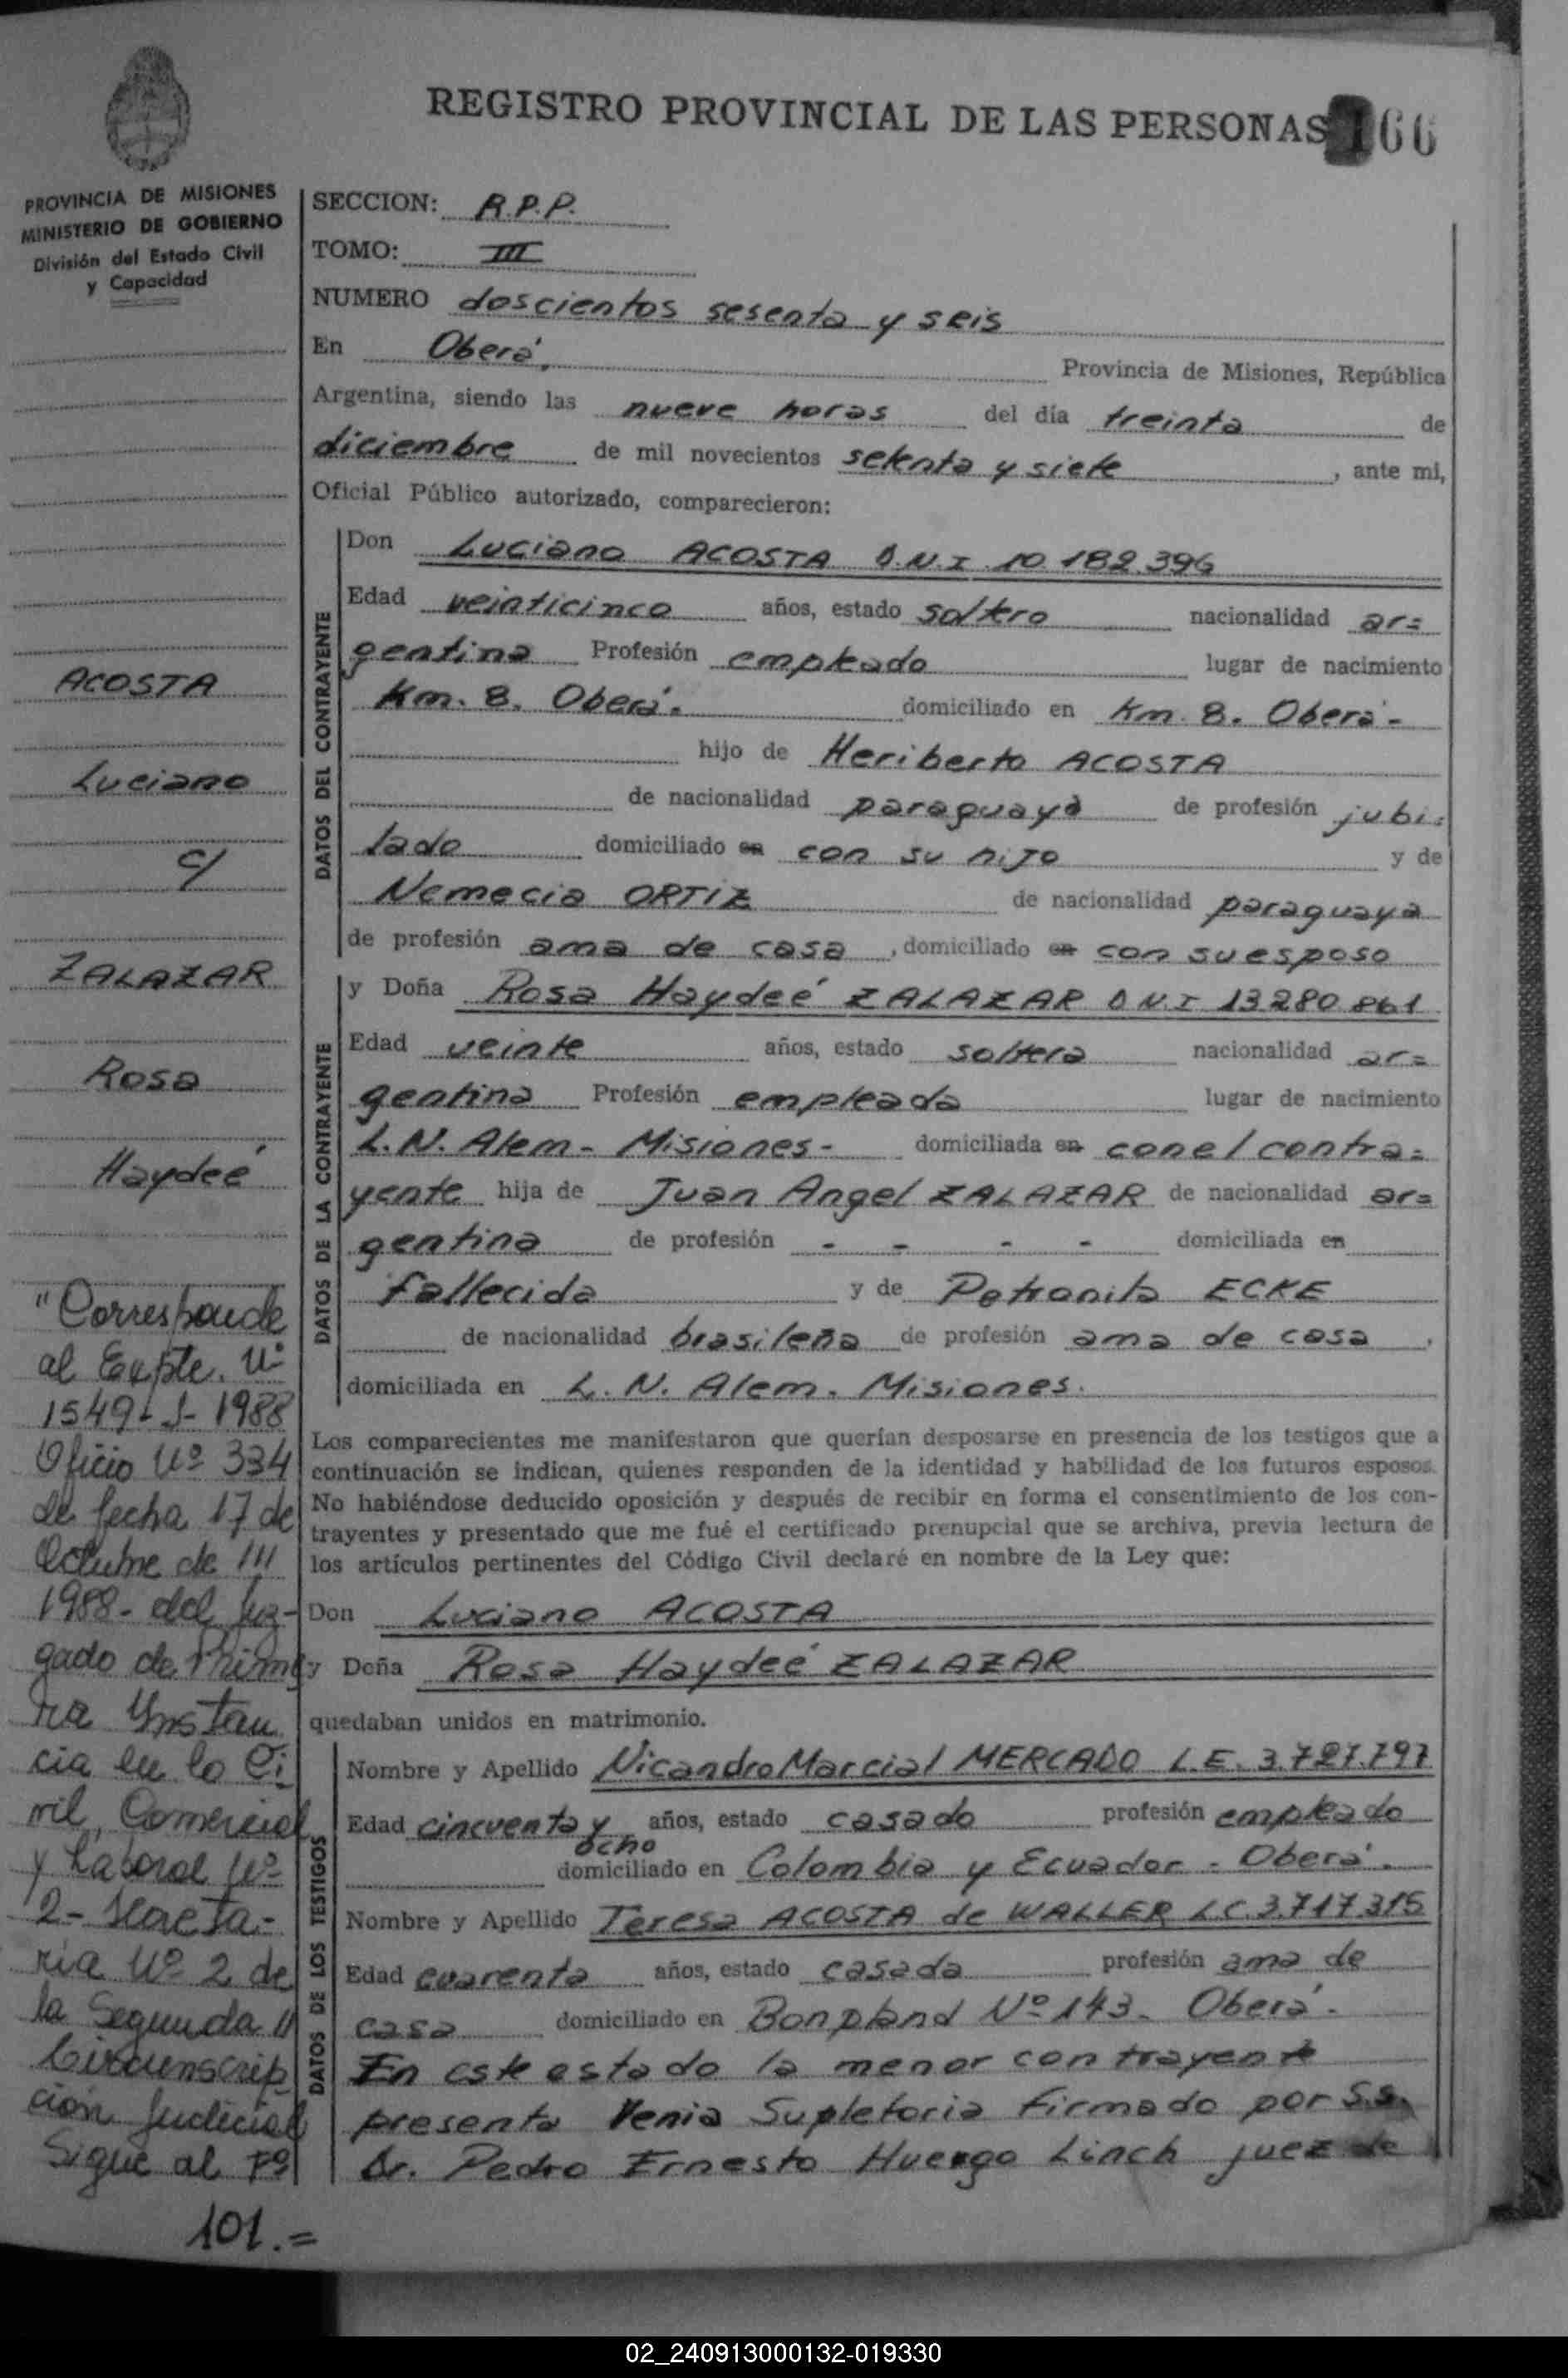 REGISTRO PROVINCIAL DE LAS PERSONAS 166
PROVINCIA DE MISIONES
MINISTERIO DE GOBIERNO
División del Estado Civil
y Capacidad
ACOSTA
Luciano
c/
ZALAZAR
Rosa
Haydeé
"Corresponde
al Expte. Nº
1549-J-1988
Oficio Nº 334
de fecha 17 de
Octubre de
1988- del Juz-
gado de Prime
ra Instan
cia en lo Ci
vil, Comercial
y Laboral Nº
2- Secreta-
ria Nº 2 de
la Segunda
Circunscrip
ción Judicial
Sigue al Fº
101.=
SECCION: R.P.P.
TOMO: III
NUMERO doscientos sesenta y seis
En Oberá, Provincia de Misiones, República
Argentina, siendo las nueve horas del día treinta de
diciembre de mil novecientos setenta y siete, ante mi,
Oficial Público autorizado, comparecieron:
DATOS DEL CONTRAYENTE
Don Luciano ACOSTA D.N.I 10.182.396
Edad veinticinco años, estado soltero nacionalidad ar=
gentina Profesión empleado lugar de nacimiento
Km. 8. Oberá. domiciliado en Km. 8. Oberá-
hijo de Heriberto ACOSTA
de nacionalidad paraguaya de profesión jubi=
lado domiciliado en con su hijo y de
Nemecia ORTIZ de nacionalidad paraguaya
de profesión ama de casa, domiciliado en con su esposo
DATOS DE LA CONTRAYENTE
y Doña Rosa Haydeé ZALAZAR D.N.I 13.280.861
Edad veinte años, estado soltera nacionalidad ar=
gentina Profesión empleada lugar de nacimiento
L.N. Alem- Misiones- domiciliada en con el contra=
yente hija de Juan Angel ZALAZAR de nacionalidad ar=
gentina de profesión - - - - domiciliada en
fallecida y de Petronila ECKE
de nacionalidad brasileña de profesión ama de casa,
domiciliada en L. N. Alem. Misiones.
Los comparecientes me manifestaron que querían desposarse en presencia de los testigos que a
continuación se indican, quienes responden de la identidad y habilidad de los futuros esposos.
No habiéndose deducido oposición y después de recibir en forma el consentimiento de los con-
trayentes y presentado que me fué el certificado prenupcial que se archiva, previa lectura de
los artículos pertinentes del Código Civil declaré en nombre de la Ley que:
Don Luciano ACOSTA
y Doña Rosa Haydeé ZALAZAR
quedaban unidos en matrimonio.
DATOS DE LOS TESTIGOS
Nombre y Apellido Nicandro Marcial MERCADO L.E. 3.727.797
Edad cincuenta y años, estado casado profesión empleado
ocho
domiciliado en Colombia y Ecuador - Oberá.
Nombre y Apellido Teresa ACOSTA de WALLER L.C. 3.717.315
Edad cuarenta años, estado casada profesión ama de
casa domiciliado en Bonpland Nº 143- Oberá.
En este estado la menor contrayente
presenta Venia Supletoria firmado por S.S.
Dr. Pedro Ernesto Huergo Linch juez de
02_240913000132-019330